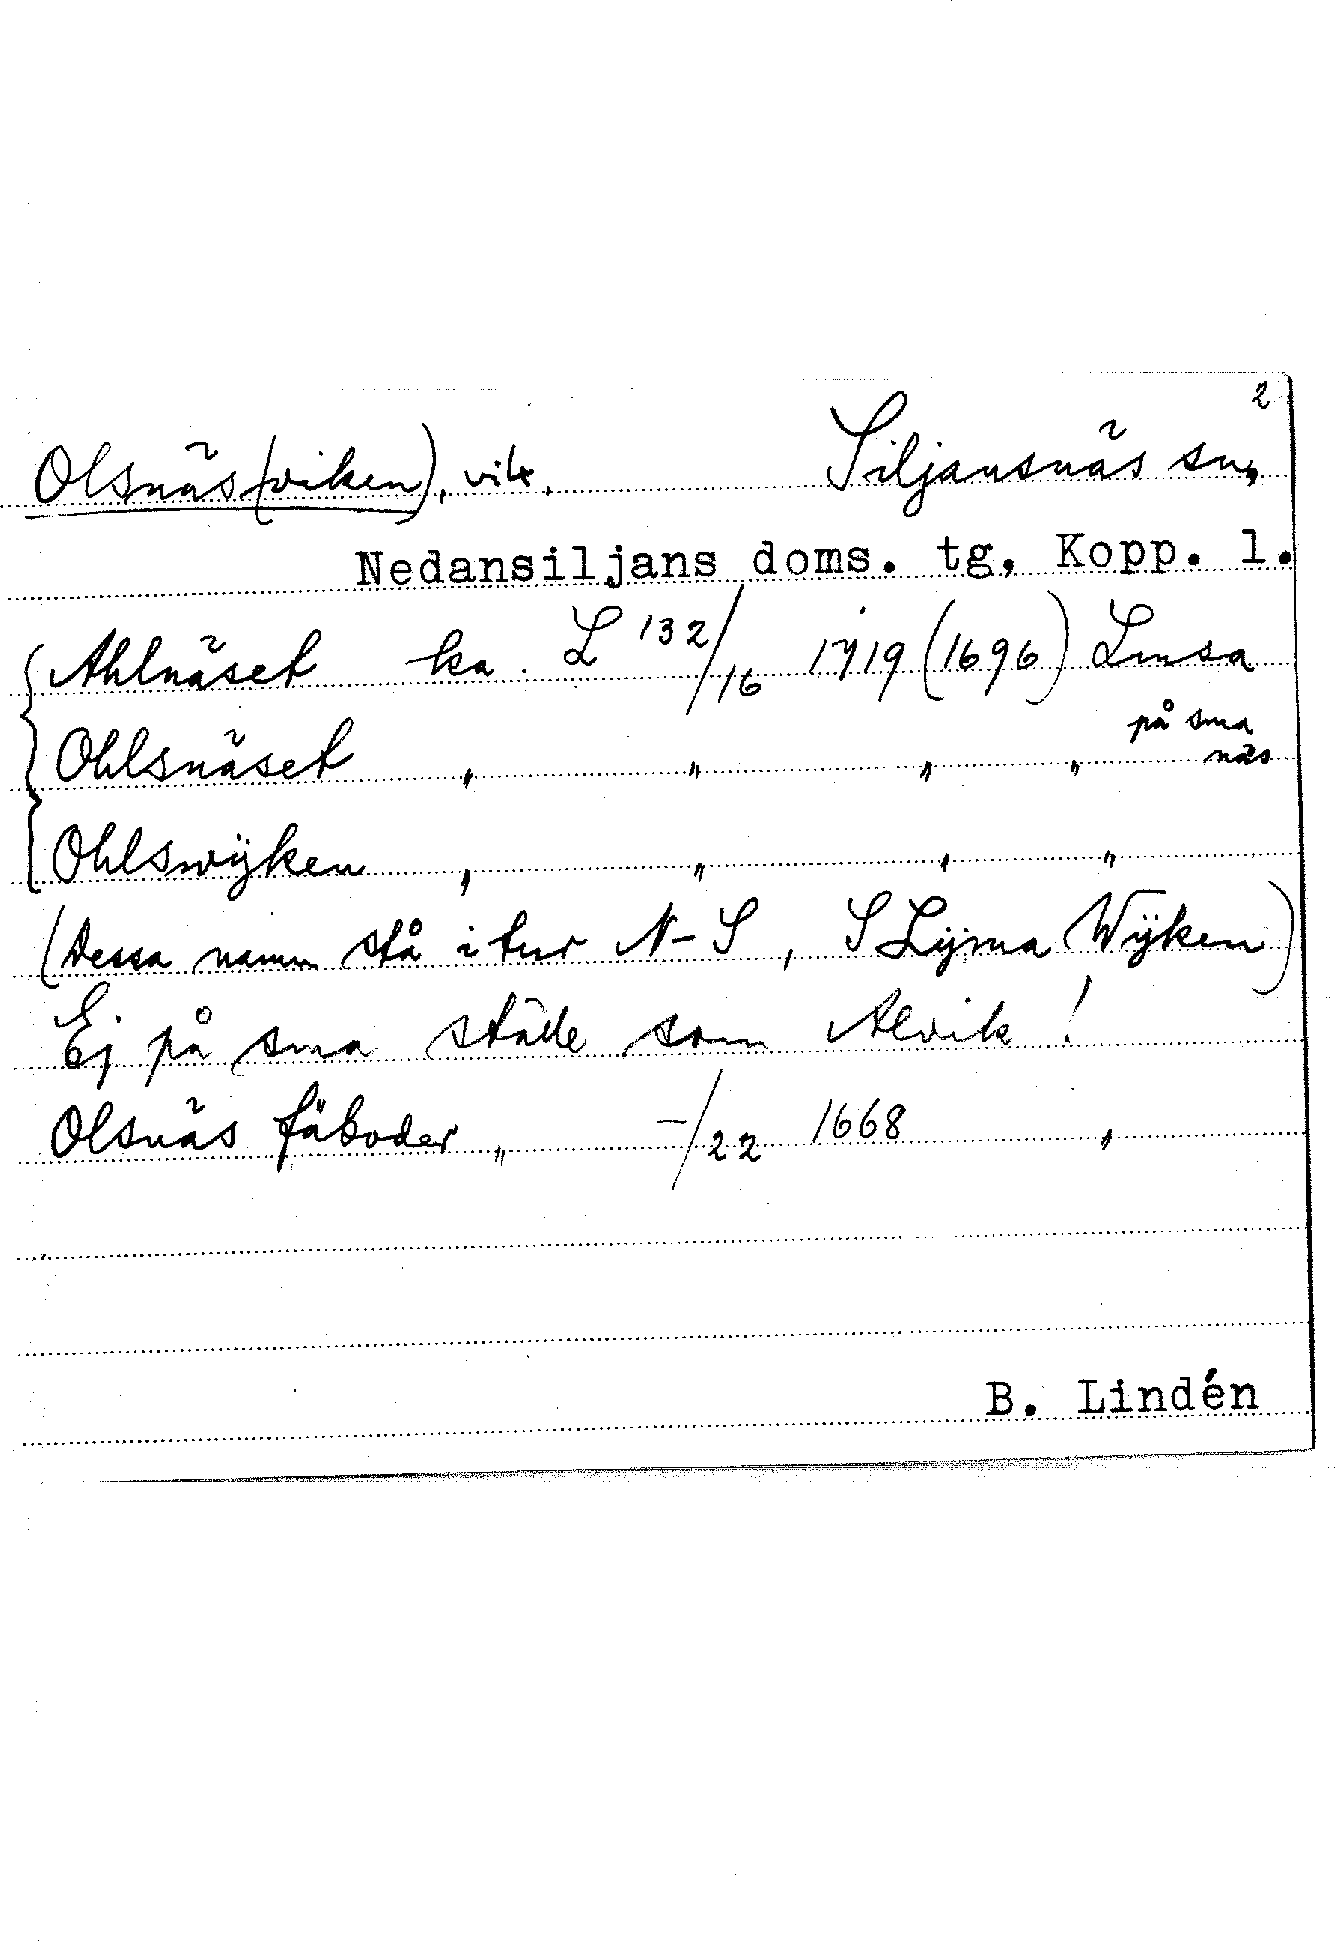 2
Olsnäs(viken), vik. Siljansnäs sn,
Nedansiljans doms. tg, Kopp. l.
Ahlnäset ka. L 132/16 1719 (1696) Lmsa
Ohlsnäset " " " " på sma näs
Ohlswijken " " " "
(Dessa namn stå i tur N-S, S Lijma Wijken)
Ej på sma ställe som Alvik!
Olsnäs fäboder " -/22 1668 "
B. Lindén